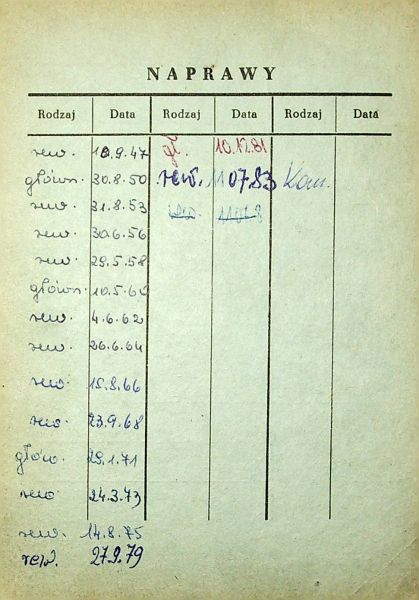 NAPRAWY
Rodzaj Data Rodzaj Data Rodzaj Data
rew. 10.9.47 gł. 10.12.81
główn. 30.8.50 rew. 110783 Kom.
rew. 31.8.53
rew. 30.6.56
rew. 29.5.58
główn. 10.5.60
rew. 4.6.62
rew. 26.6.64
rew. 18.8.66
rew. 23.9.68
główn. 29.1.71
rew. 24.3.73
rew. 14.8.75
rew. 27.9.79